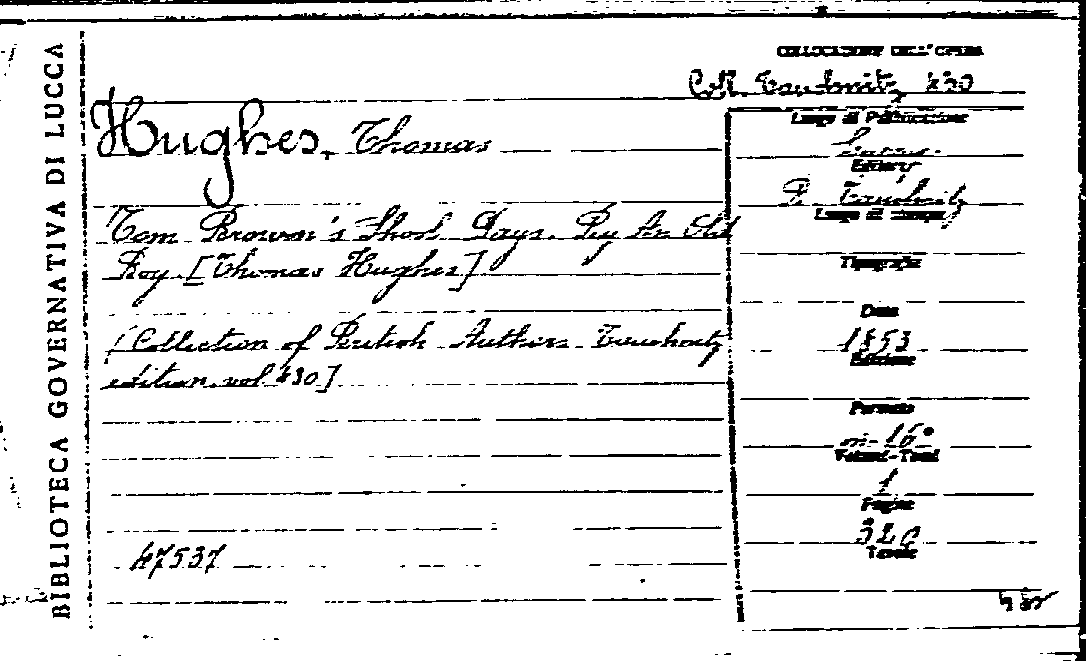 BIBLIOTECA GOVERNATIVA DI LUCCA
COLLOCAZIONE DELL'OPERA
Coll. Tauchnitz 430
Hughes, Thomas
Tom Brown's School Days. By An Old
Boy [Thomas Hughes]
[Collection of British Authors Tauchnitz
edition vol 430]
47537
Luogo di Pubblicazione
Editore
B. Tauchnitz
Luogo di stampa
Tipografia
Data
1853
Edizione
Formato
in-16°
Volumi-Tomi
1
Pagine
320
Tavole